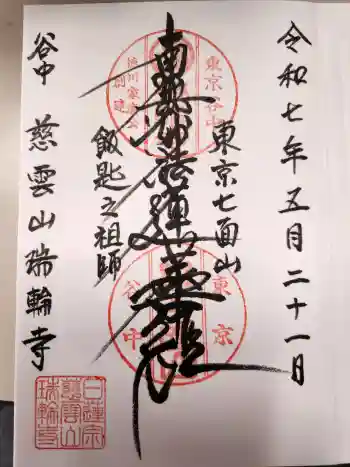 令和七年五月二十一日
東京七面山
南無妙法蓮華経
飯匙之祖師
谷中 慈雲山瑞輪寺
東京谷中
徳川家康公
創建
東京
谷中
日蓮宗
慈雲山
瑞輪寺